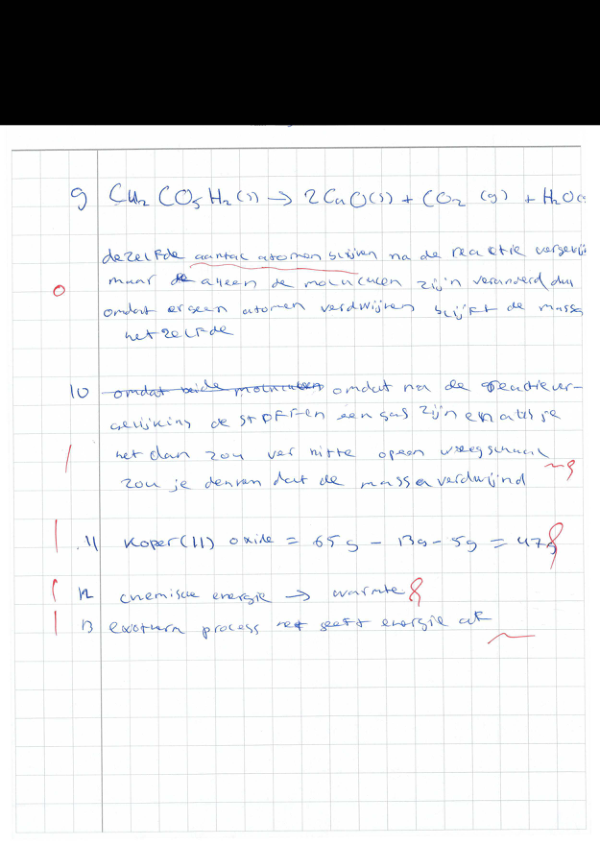 9 Cu₂CO₅H₂(s) → 2CuO(s) + CO₂ (g) + H₂O(
dezelfde aantal atomen blijven na de reactie
maar alleen de moleculen zijn veranderd dus
omdat er geen atomen verdwijnen blijft de massa
het zelfde
0
10 omdat beide moleculen omdat na de reactiever-
gelijking de stoffen een gas zijn en als je
het dan zou verhitte op een weegschaal
zou je denken dat de massa verdwijnd
1
1 11 koper(II) oxide = 65g - 13g - 5g = 47g
1 12 chemische energie → warmte
1 13 exotherm process het geeft energie af